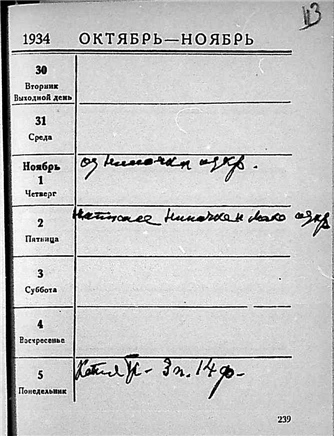 43
1934 ОКТЯБРЬ—НОЯБРЬ
30
Вторник
Выходной день
31
Среда
Ноябрь
1
Четверг
от Ниночки откр.
2
Пятница
Ниночке откр
3
Суббота
4
Воскресенье
5
Понедельник
3 п. 14 ф.
239